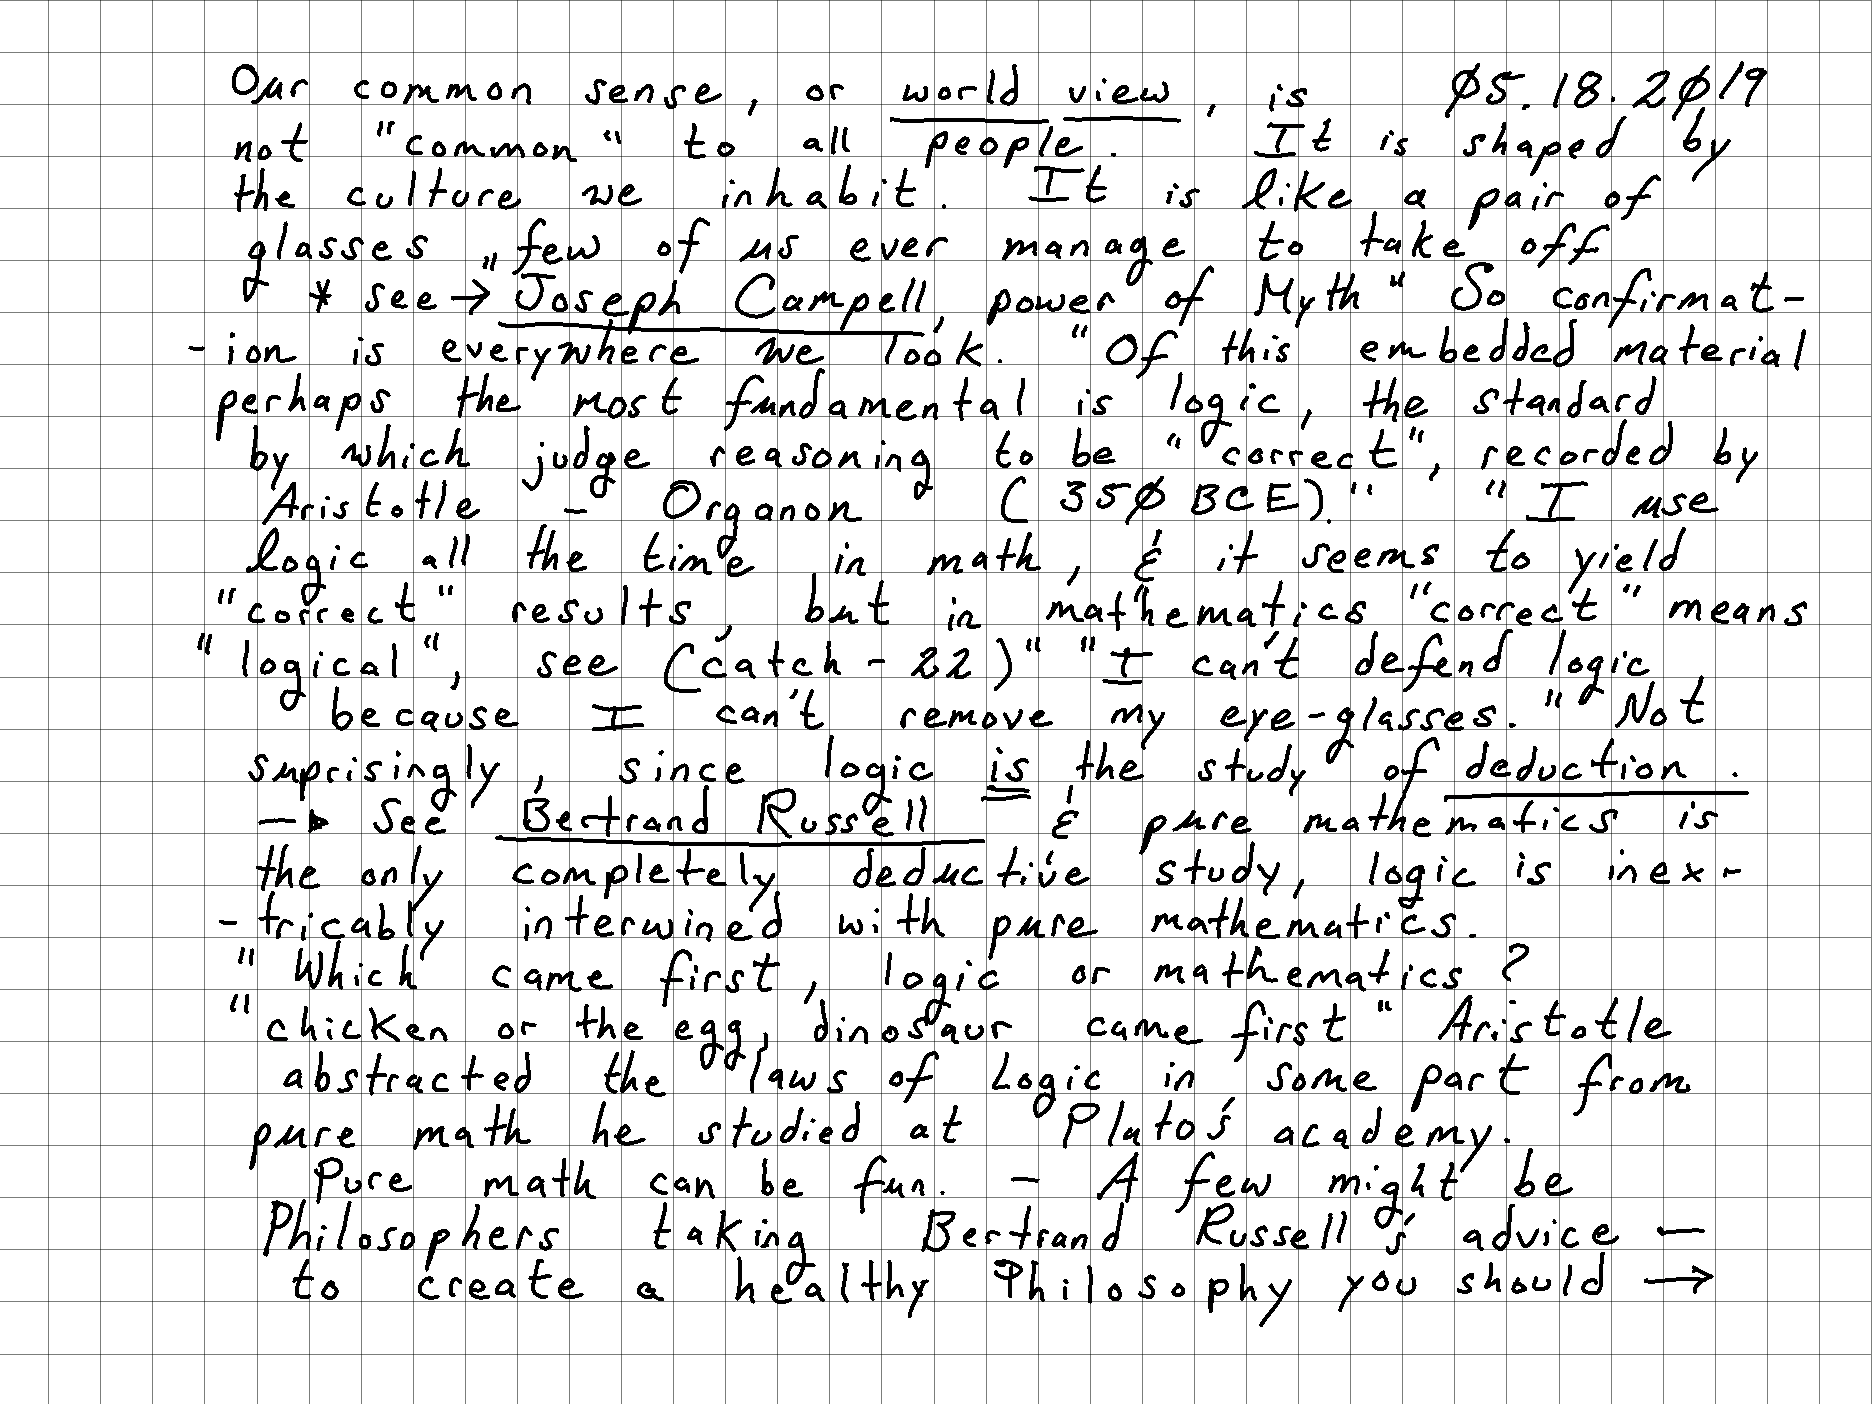 Our common sense, or world view, is 05.18.2019
not "common" to all people. It is shaped by
the culture we inhabit. It is like a pair of
glasses „few of us ever manage to take off
* see → Joseph Campell, power of Myth" So confirmat-
-ion is everywhere we look. "Of this embedded material
perhaps the most fundamental is logic, the standard
by which judge reasoning to be "correct", recorded by
Aristotle - Organon (350 BCE)." "I use
logic all the time in math, & it seems to yield
"correct" results, but in mathematics "correct" means
"logical", see (catch-22)" "I can't defend logic
because I can't remove my eye-glasses." Not
suprisingly, since logic is the study of deduction.
→ See Bertrand Russell & pure mathematics is
the only completely deductive study, logic is inex-
-tricably interwined with pure mathematics.
"Which came first, logic or mathematics?
"chicken or the egg, dinosaur came first" Aristotle
abstracted the laws of Logic in some part from
pure math he studied at Plato's academy.
Pure math can be fun. - A few might be
Philosophers taking Bertrand Russell's advice —
to create a healthy Philosophy you should →